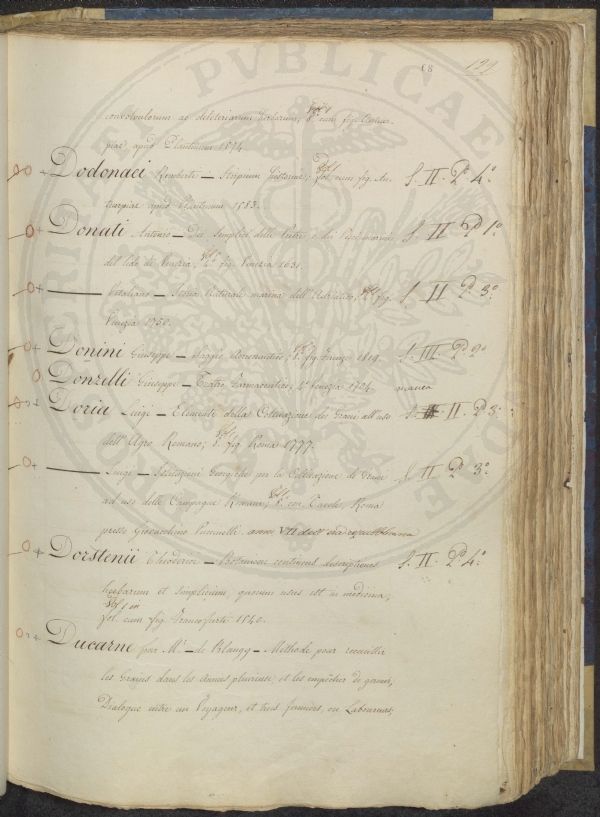 68 129
convolvulorum ac deleteriarum herbarum, Vol. 1 8.° cum fig. Antuer-
piae, apud Plantinum 1574
Dodonaei Remberti — Stirpium historiae; Vol. 1 fol. cum fig. An- S. II. P.° 4.°
tuerpiae apud Plantinum 1583.
Donati Antonio — De Semplici delle Pietre e di Pesci marini S. II P.° 1.°
del lido di Venezia, Vol. 1 4.° fig. Venezia 1631.
——— Vitaliano — Storia Naturale marina dell'Adriatico, Vol. 1 4.° fig. S. II P.° 3.°
Venezia 1750.
Donini Giuseppe — Saggio 8.° fig. Firenze 1819. S. III. P.° 2.°
Donzelli Giuseppe — Teatro Farmaceutico, 4.° Venezia 1704 manca
Doria Luigi — Elementi della Coltivazione dei Grani all'uso S. II. P.° 3.
dell'Agro Romano; Vol. 1 8.° fig. Roma 1777.
——— Luigi — Istituzioni Georgiche per la Coltivazione di Grani S. II P.° 3.°
ad uso delle Campagne Romane; Vol. 1 8.° con Tavole, Roma
presso Gioacchino Puccinelli anno VII dell'era repubblicana
Dorstenii Theodorico — Botanicon continens descriptiones S. II. P.° 4.°
herbarum et simplicium, quorum usus est in medicina;
Vol. 1 in
fol. cum fig. Francofurti 1540.
Ducarne par M.r — de Blangy — Methode pour recueillir
les Grains dans les années pluvieuse et les empêcher de germer,
Dialogue entre un Voyageur, et trois fermiers, ou Laboureurs,
PVBLICAE